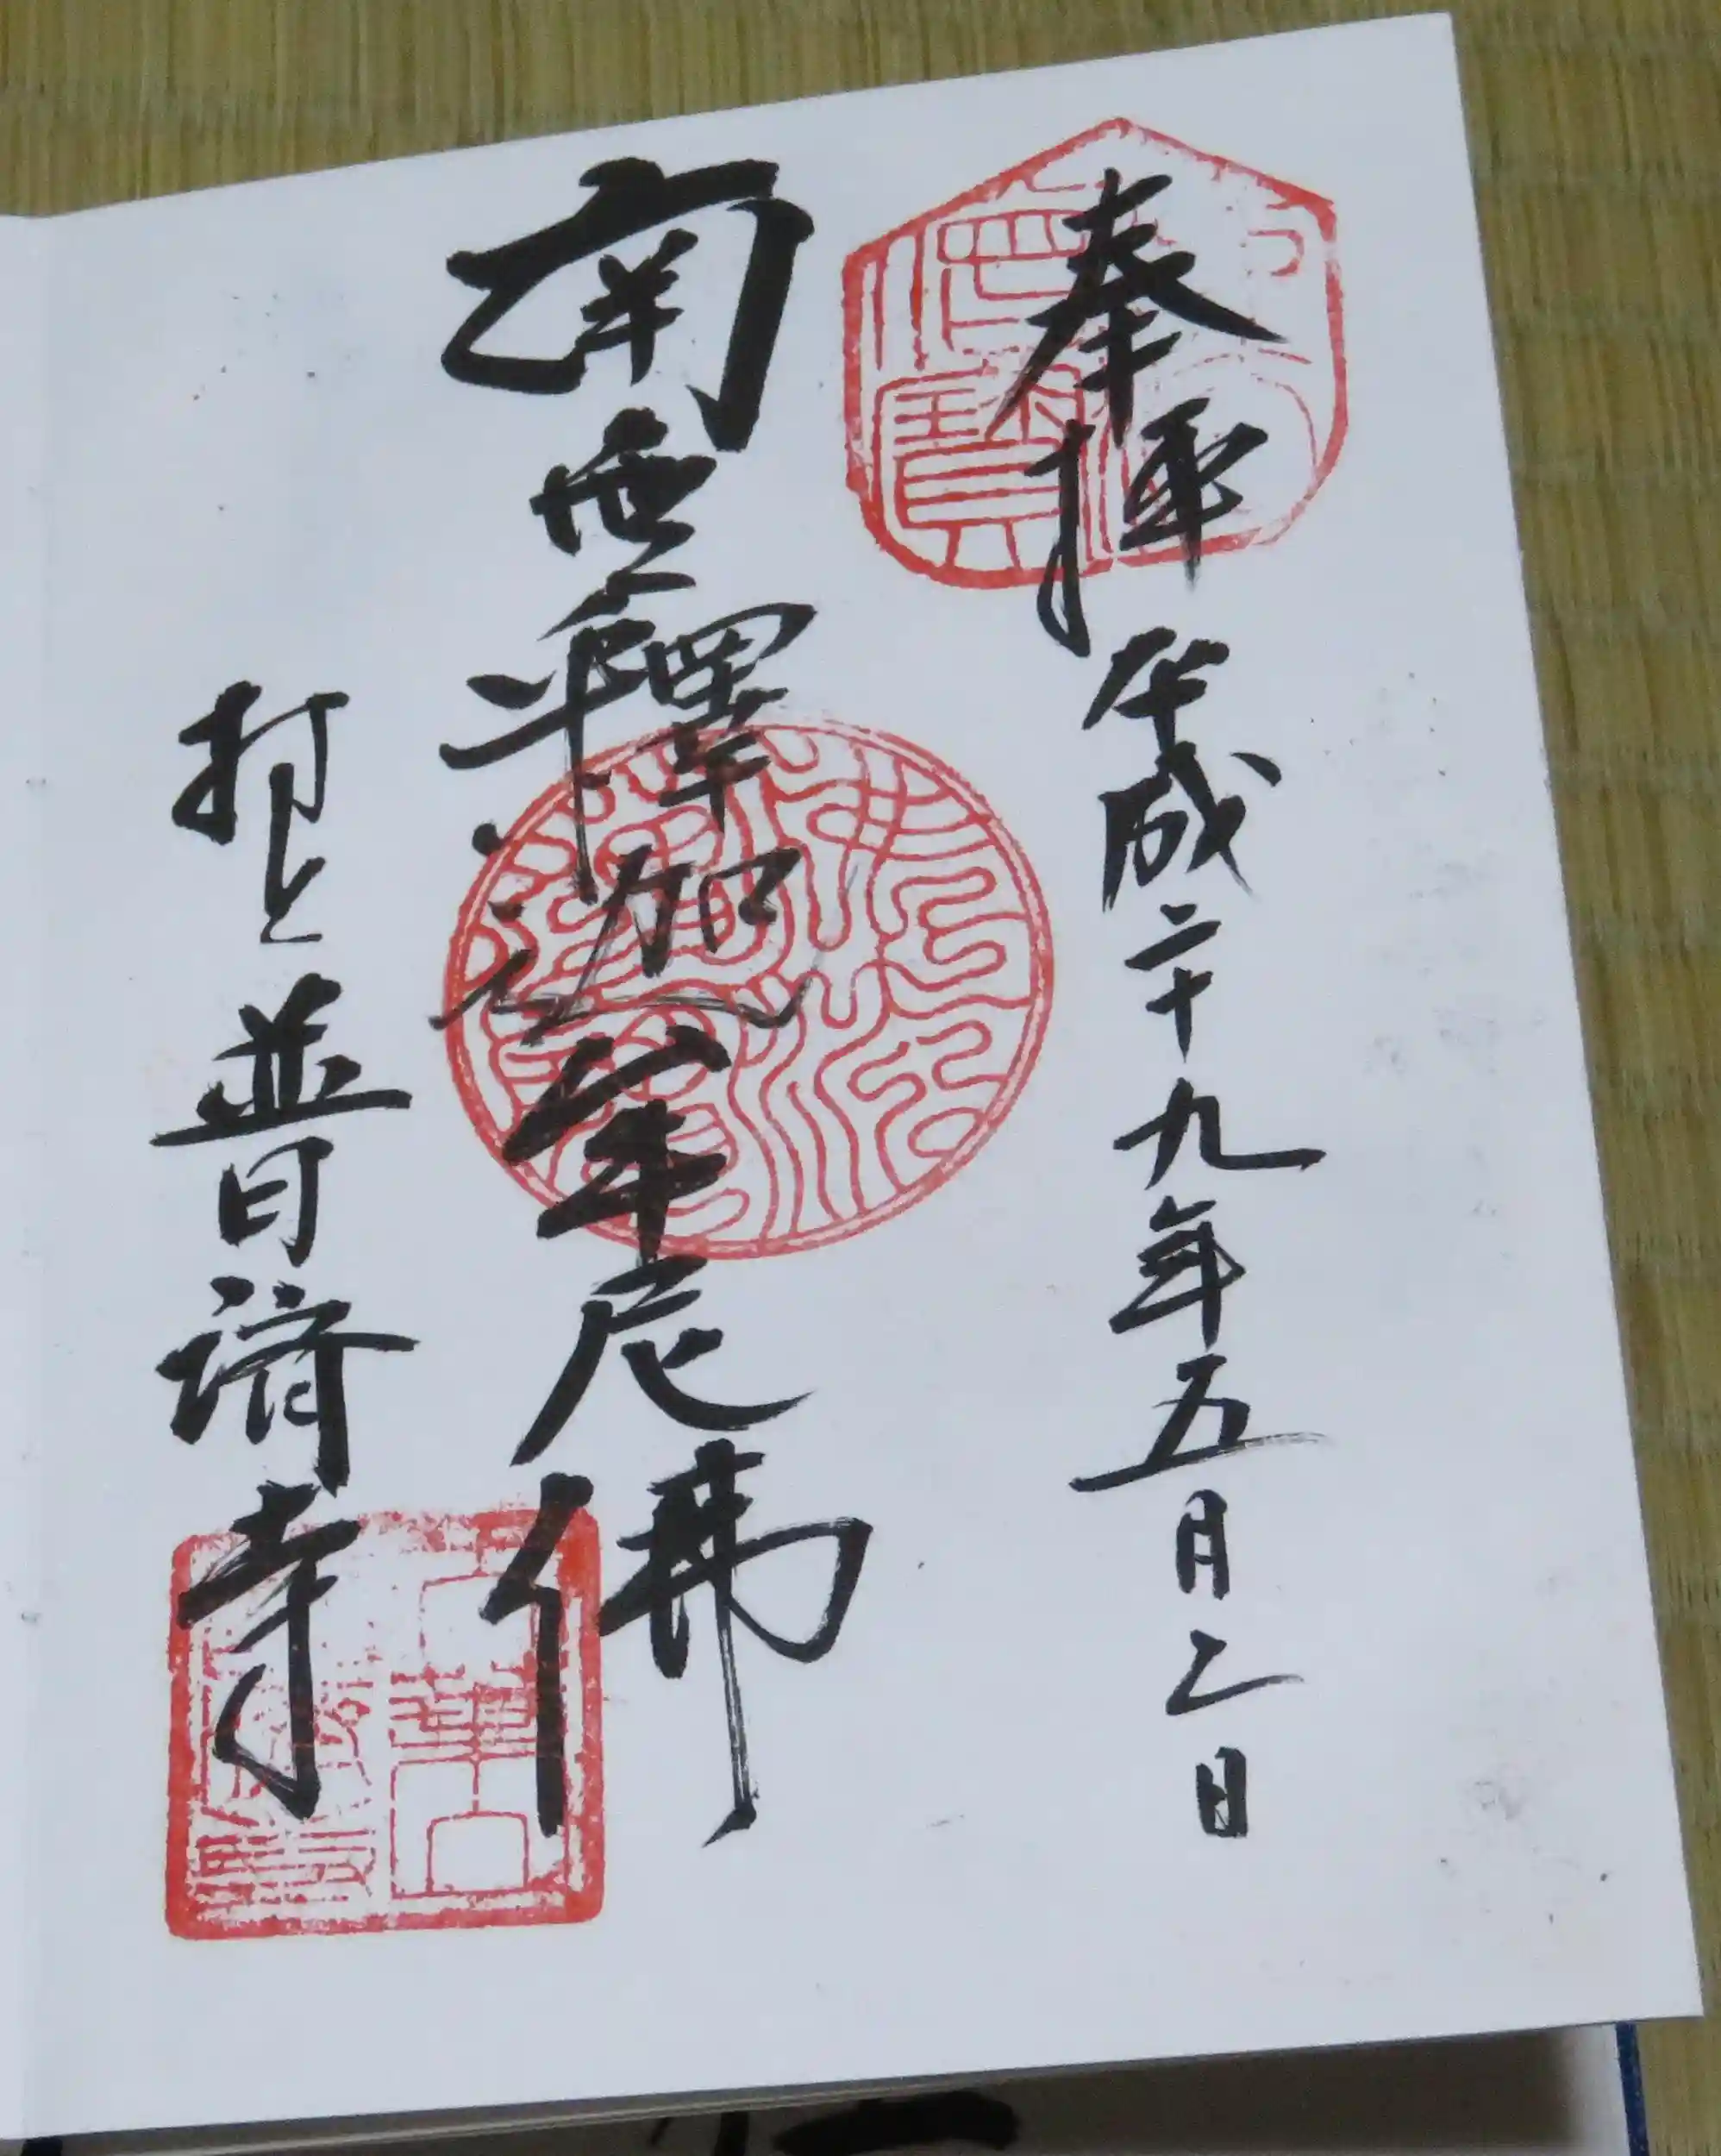 奉拝 平成二十九年五月二日
南無釋迦牟尼佛
村上 普濟寺